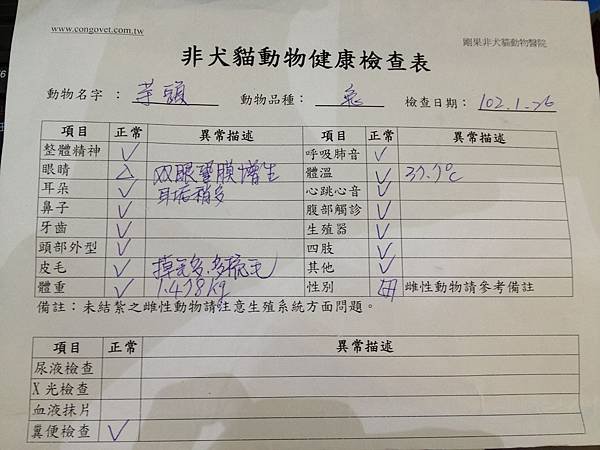 www.congovet.com.tw
剛果非犬貓動物醫院
非犬貓動物健康檢查表
動物名字： 芋頭 動物品種： 兔 檢查日期： 102.1.26
項目 正常 異常描述 項目 正常 異常描述
整體精神 ✓ 呼吸肺音 ✓
眼睛 △ 双眼瞬膜增生 體溫 ✓ 37.7℃
耳朵 ✓ 耳垢稍多 心跳心音 ✓
鼻子 ✓ 腹部觸診 ✓
牙齒 ✓ 生殖器 ✓
頭部外型 ✓ 四肢 ✓
皮毛 ✓ 掉毛多,多梳毛 其他 ✓
體重 ✓ 1.478kg 性別 母 雌性動物請參考備註
備註：未結紮之雌性動物請注意生殖系統方面問題。
項目 正常 異常描述
尿液檢查
X光檢查
血液抹片
糞便檢查 ✓